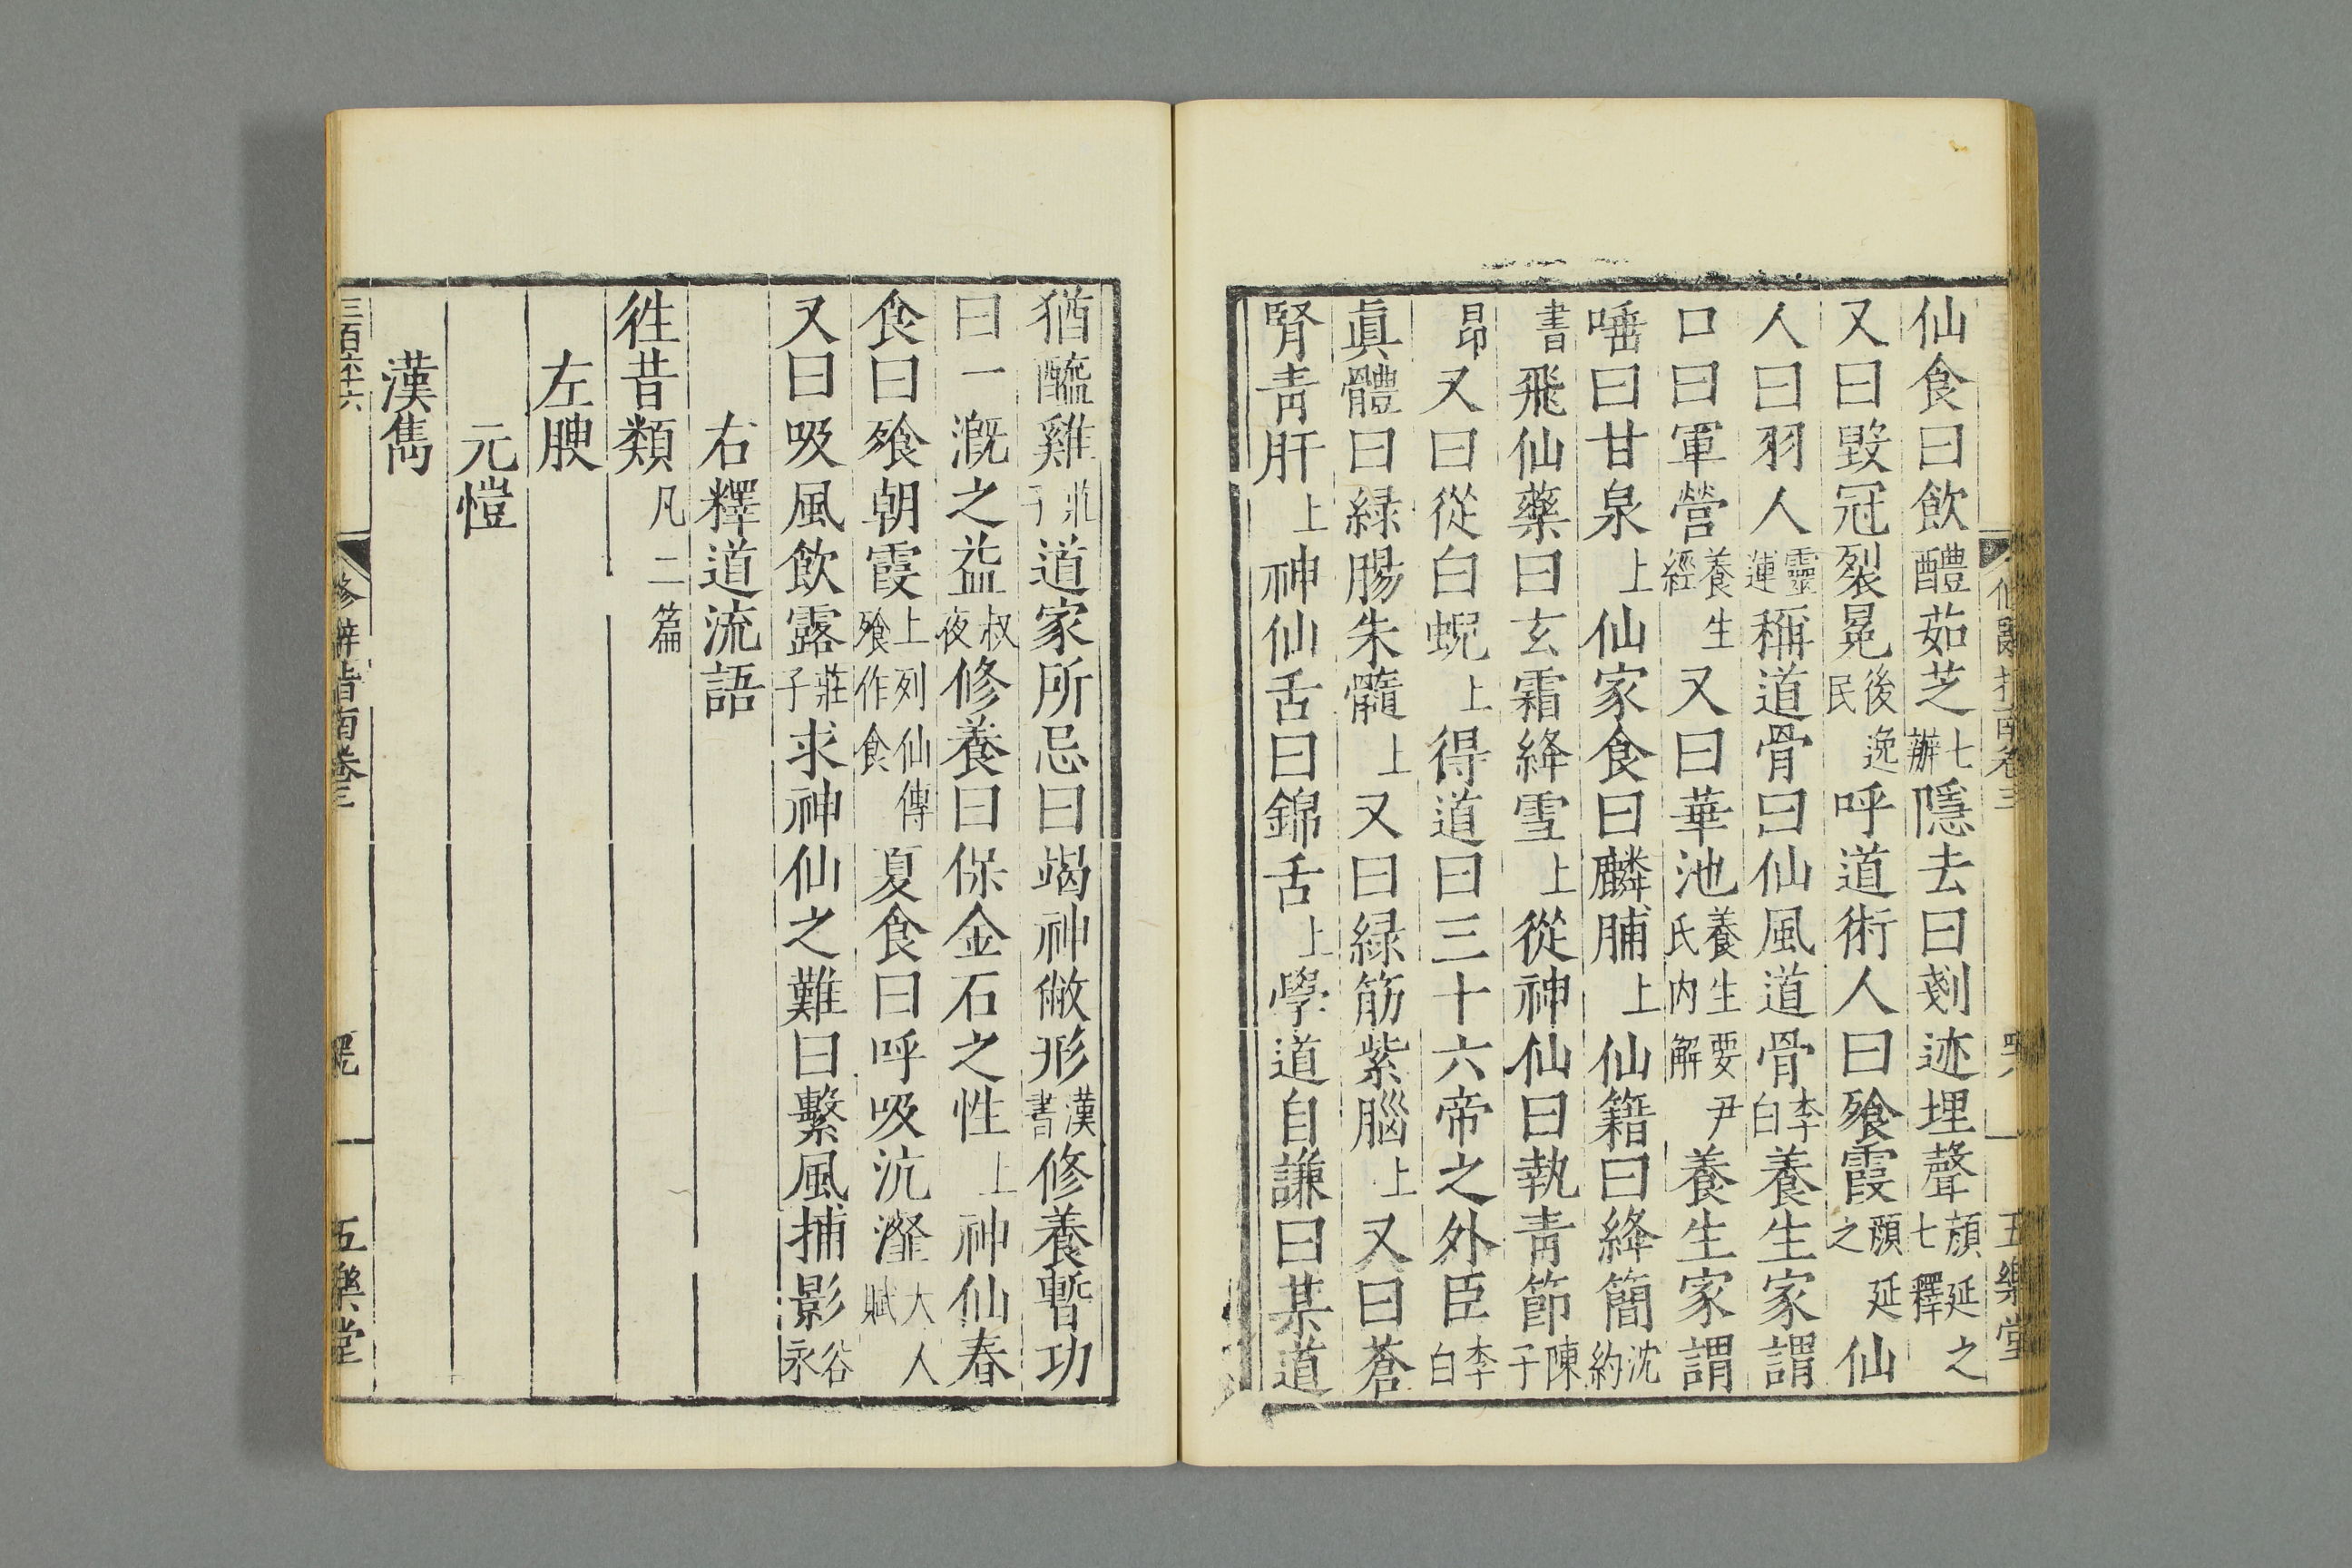 仙食曰飲醴茹芝七辦隱去曰剗迹埋聲顏延之七釋
又曰毀冠裂冕後逸民呼道術人曰飱霞顏延之仙
人曰羽人靈運稱道骨曰仙風道骨李白養生家謂
口曰軍營養生經又曰華池養生要尹氏内解養生家謂
唾曰甘泉上仙家食曰麟脯上仙籍曰絳簡沈約
書飛仙藥曰玄霜絳雪上從神仙曰執青節陳子
昂又曰從白蜺上得道曰三十六帝之外臣李白
眞體曰緑腸朱髓上又曰緑筋紫腦上又曰蒼
腎青肝上神仙舌曰錦舌上學道自謙曰某道
猶醯雞莊子道家所忌曰竭神僘形漢書修養暫功
曰一溉之益叔夜修養曰保金石之性上神仙春
食曰飱朝霞上列仙傳飱作食夏食曰呼吸沆瀣大人賦
又曰吸風飲露莊子求神仙之難曰繫風捕影谷永
右釋道流語
徃昔類凡二篇
左腴
元愷
漢雋
三百六十六
修辭指南卷三
五樂堂